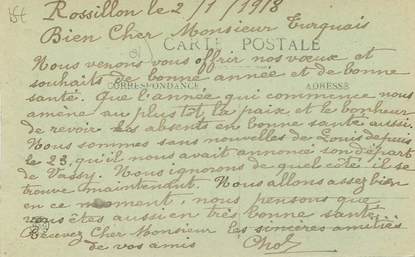 Rossillon le 2/1/1918
Bien Cher Monsieur Turquais
CARTE POSTALE
Nous venons vous offrir nos vœux et
souhaits de bonne année et de bonne
santé. Que l'année qui commence nous
CORRESPONDANCE ADRESSE
amène au plus tôt la paix et le bonheur
de revoir les absents en bonne santé aussi.
Nous sommes sans nouvelles de Louis depuis
le 23, qu'il nous avait annoncé son départ
de Vassy. Nous ignorons de quel côté il se
trouve maintenant. Nous allons assez bien
en ce moment, nous pensons que
vous êtes aussi en très bonne santé
Recevez Cher Monsieur les sincères amitiés
de vos amis